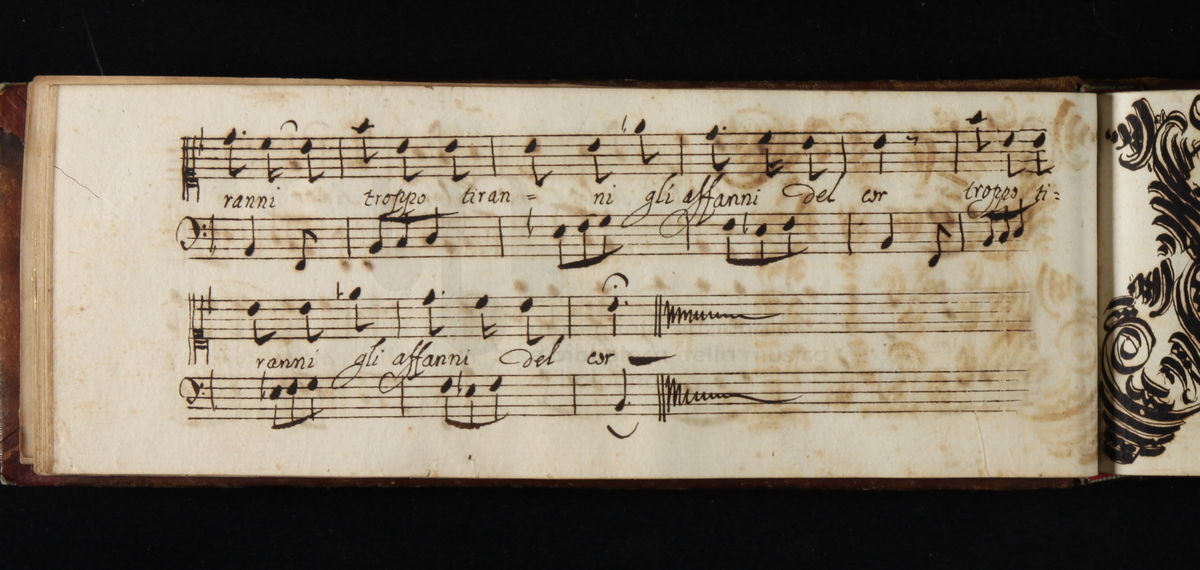 ranni troppo tiran= ni gli affanni del cor troppo ti=
ranni gli affanni del cor